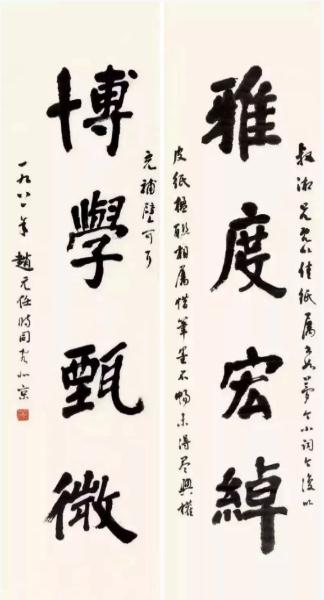 雅度宏綽
叔湘兄 以佳紙屬 夢令小詞今復以
皮紙楹聯相屬惜筆墨不暢未得尽興權
博學甄微
充補壁可可
一九八一年趙元任時同客北京